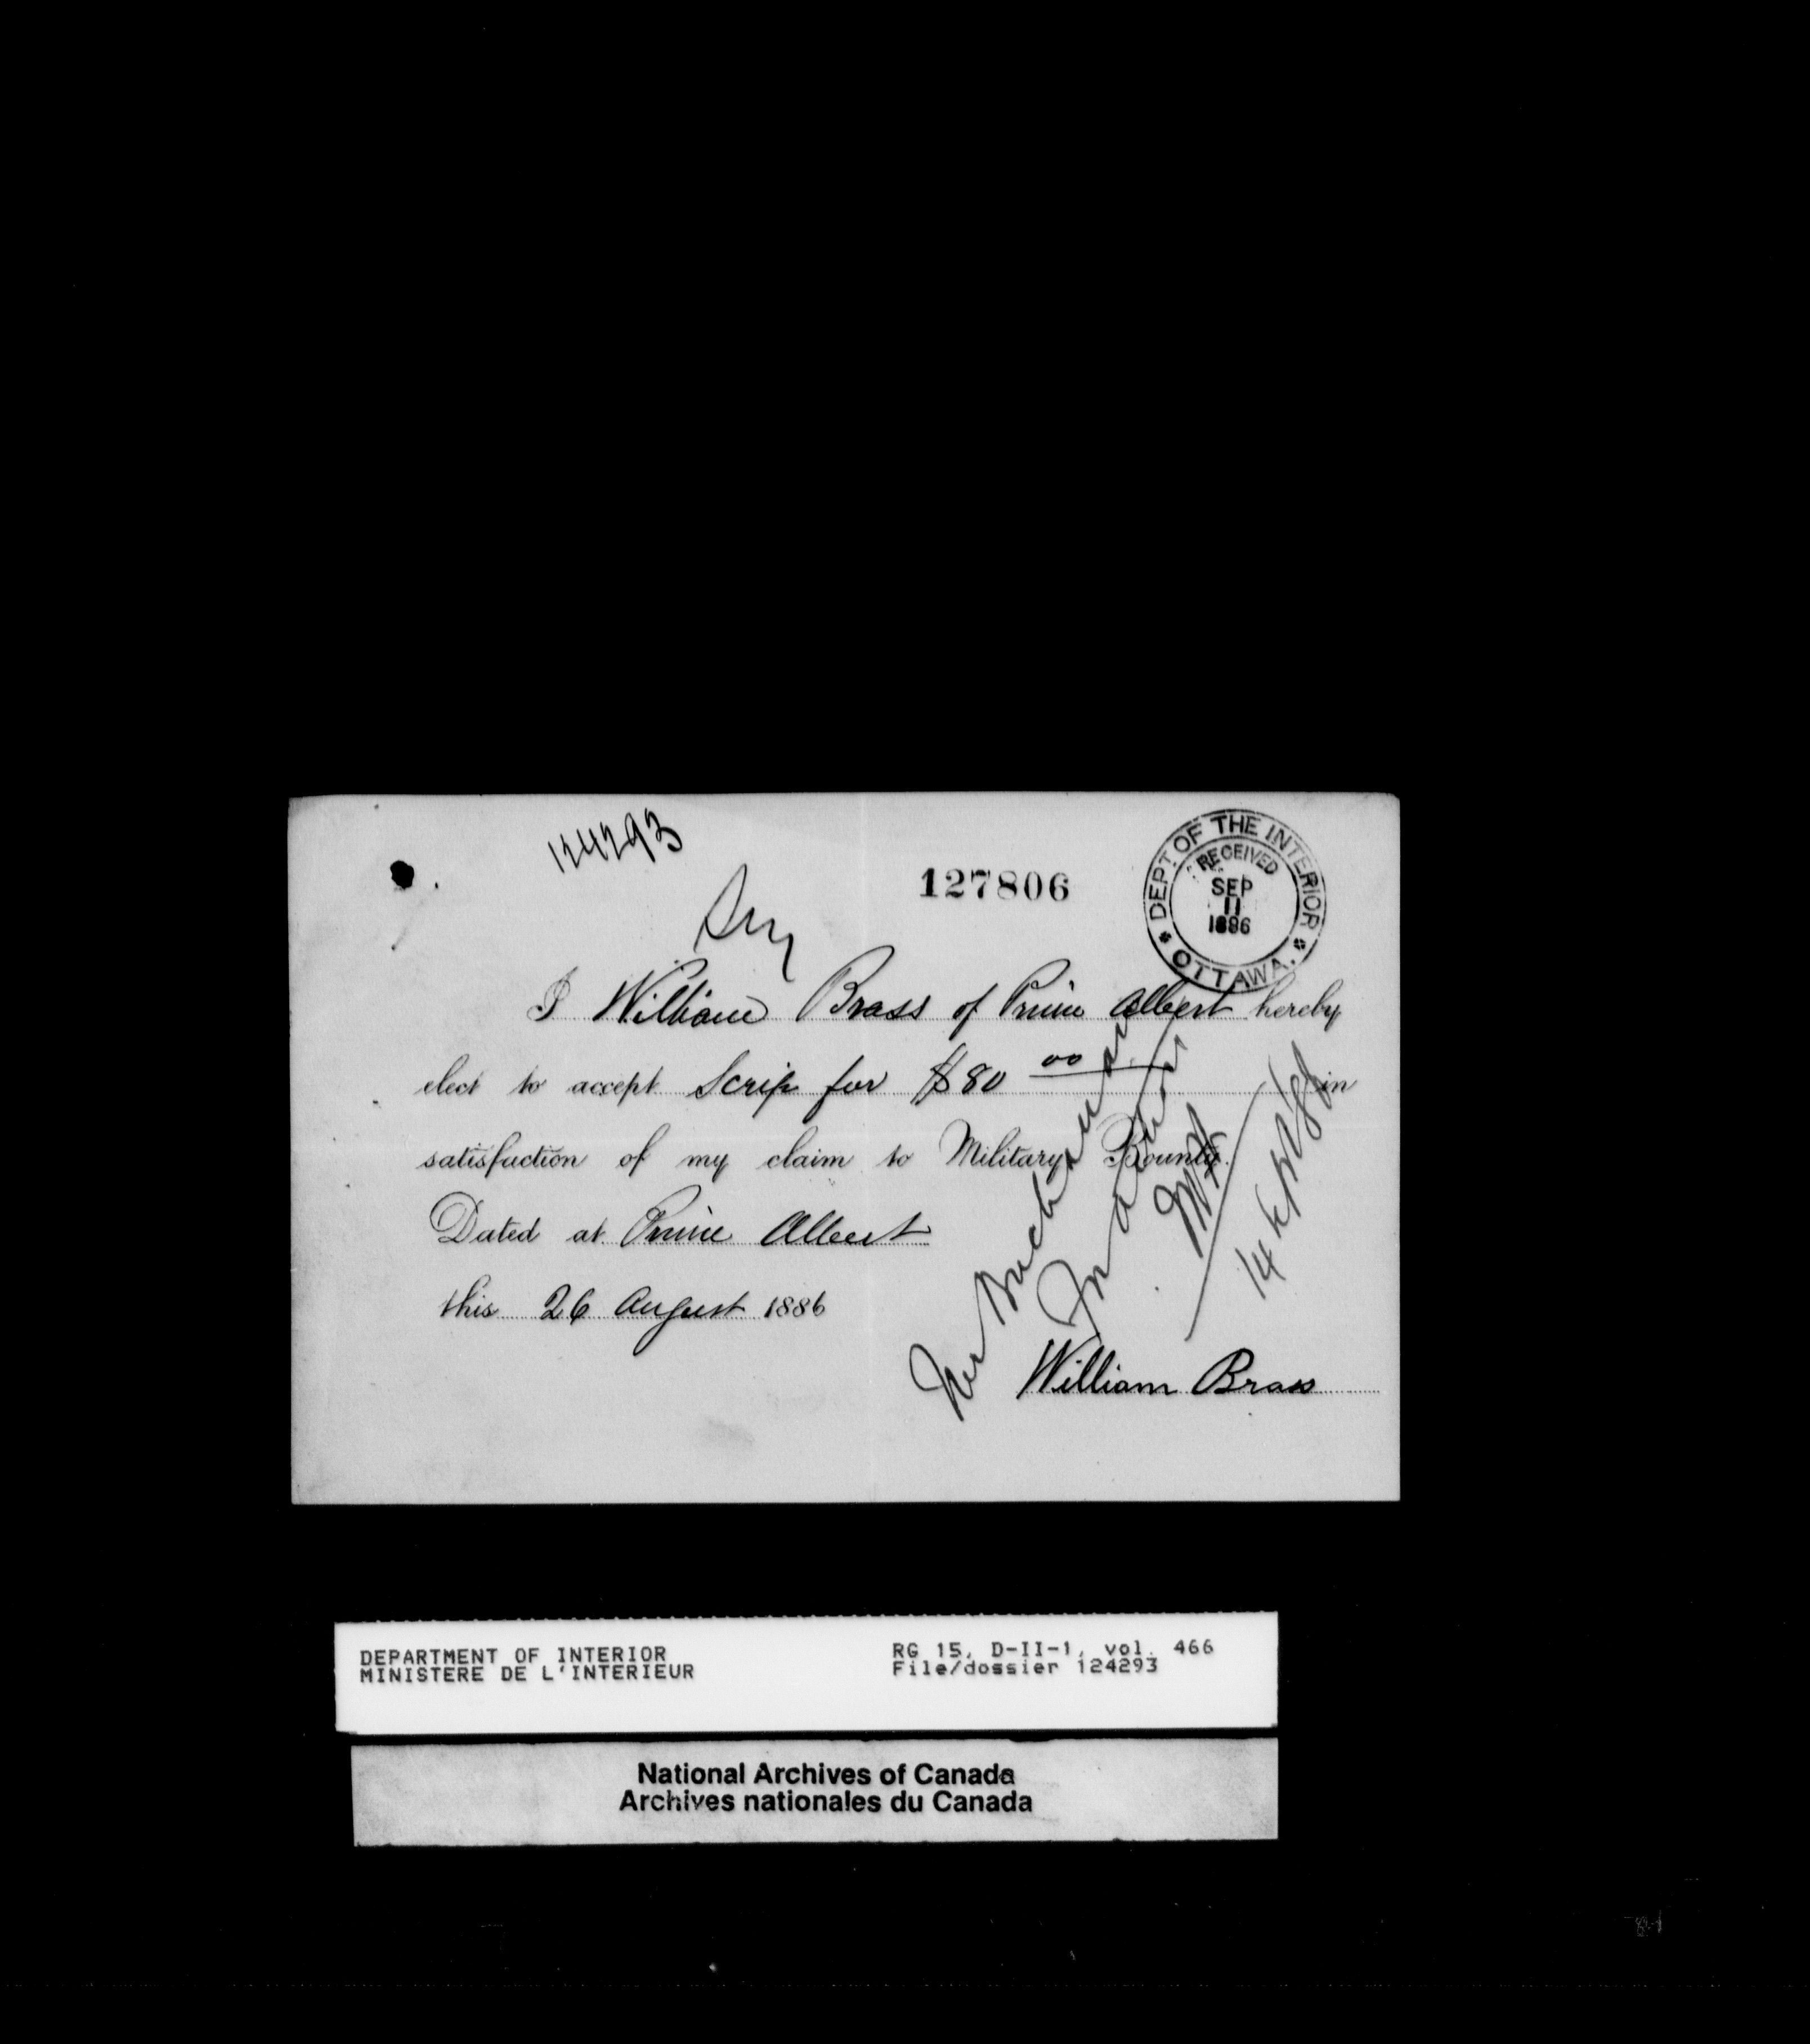 124293
127806
DEPT OF THE INTERIOR
RECEIVED
SEP
11
1886
OTTAWA.
I William Brass of Prince Albert hereby
elect to accept Scrip for $80 00 in
satisfaction of my claim to Military Bounty.
Dated at Prince Albert
this 26 August 1886
William Brass
14 Sept/86
DEPARTMENT OF INTERIOR
MINISTERE DE L'INTERIEUR
RG 15, D-II-1, vol. 466
File/dossier 124293
National Archives of Canada
Archives nationales du Canada